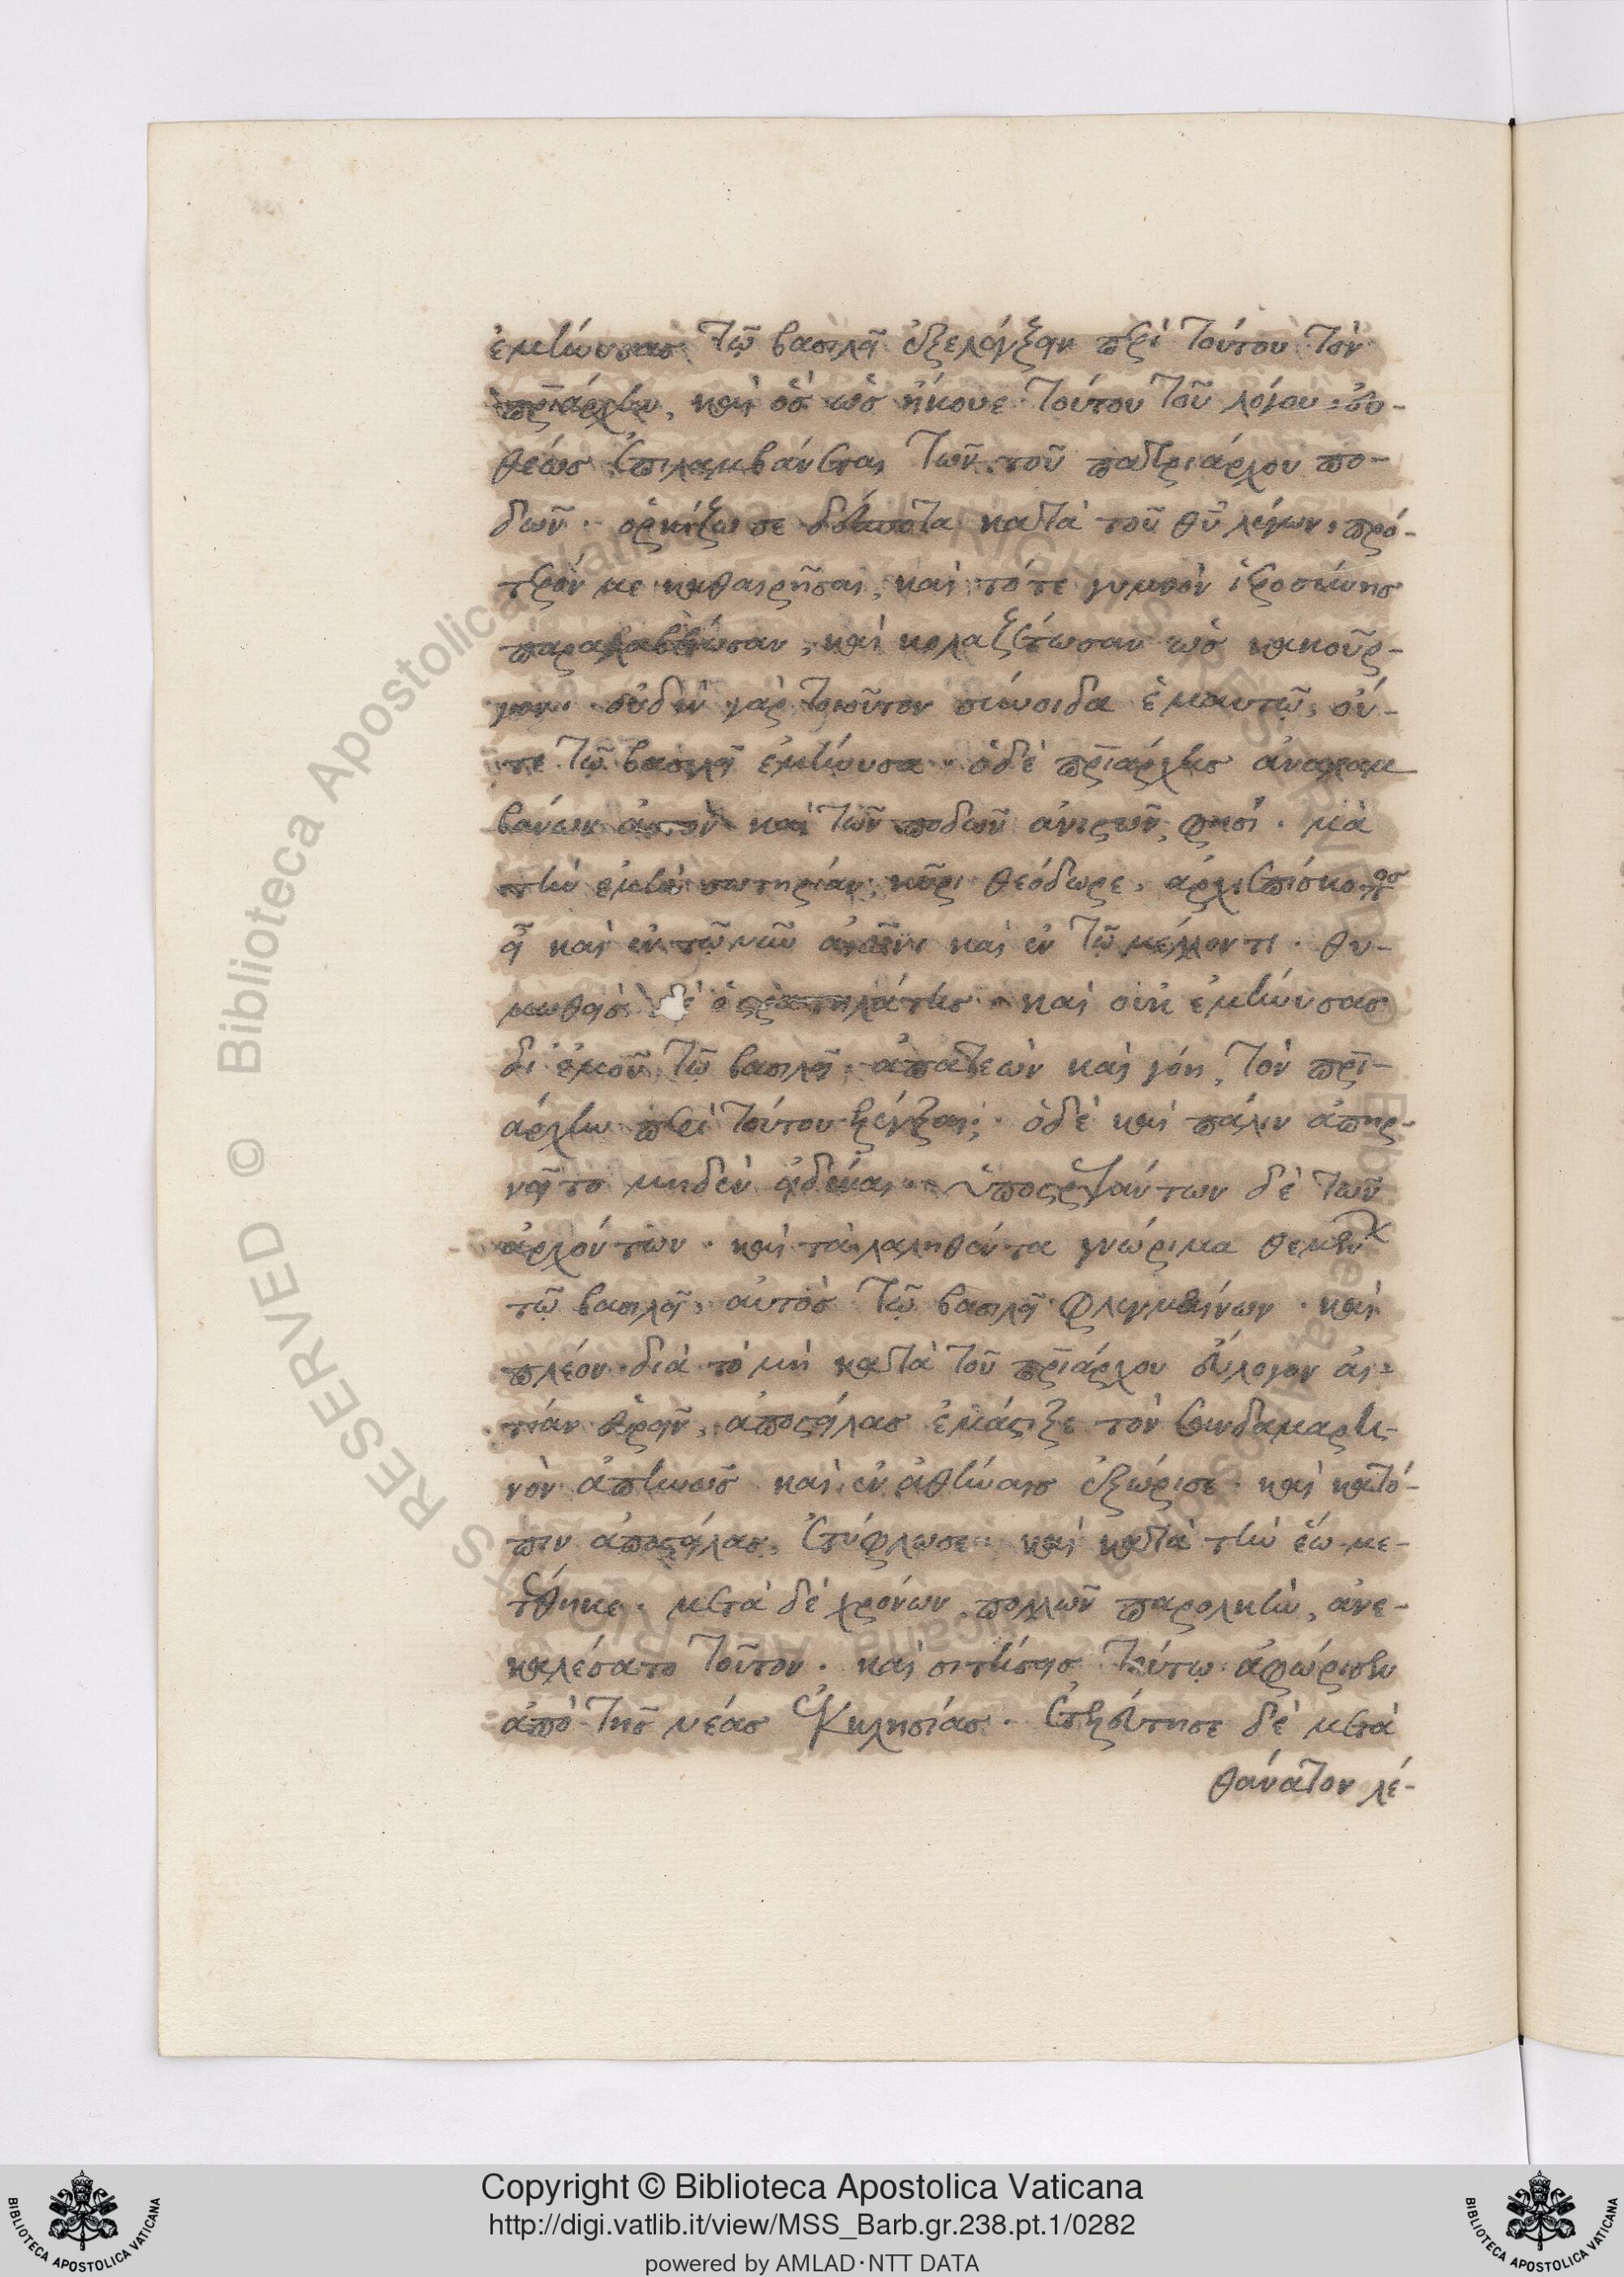 ἐμήνυσας τῷ βασιλεῖ ἐξελέγξειν περὶ τούτου τὸν
πριάρχην, καὶ ὃς ὡς ἤκουε τούτου τοῦ λόγου, εὐ-
θέως ἐπιλαμβάνεται τῶν τοῦ πατριάρχου πο-
δῶν. ὁρκίζω σε δέσποτα κατὰ τοῦ θῦ λέγων, πρό-
τερόν με καθαιρῆσαι, καὶ τότε γυμνὸν ἱεροσύνης
παραλαβέτωσαν, καὶ κολαζέτωσαν ὡς κακοῦρ-
γον. οὐδὲν γὰρ τοιοῦτον σύνοιδα ἐμαυτῷ, οὔ-
τε τῷ βασιλεῖ ἐμήνυσα. ὁ δὲ πριάρχης ἀναλαμ
βάνων αὐτὸν καὶ τῶν ποδῶν ἀνιστῶν, φησί. μὰ
τὴν ἐμὴν σωτηρίαν, κῦρι θεόδωρε, ἀρχιεπίσκοπος
εἶ καὶ ἐν τῷ νῦν αἰῶνι καὶ ἐν τῷ μέλλοντι. θυ-
μωθεὶς δὲ ὁ στρατηλάτης. καὶ οὐκ ἐμήνυσας
δι' ἐμοῦ τῷ βασιλεῖ ἀπατεὼν καὶ γόη, τὸν πρι-
άρχην περὶ τούτου ἐξελέγξαι; ὁ δὲ καὶ πάλιν ἀπηρ-
νεῖτο μηδὲν εἰδέναι. ὑποστρεψάντων δὲ τῶν
ἀρχόντων. καὶ τὰ λαληθέντα γνώριμα θεμένων
τῷ βασιλεῖ, αὐτὸς τῷ βασιλεῖ φλεγμαίνων. καὶ
πλέον διὰ τὸ μὴ κατὰ τοῦ πριάρχου εὔλογον αἰ-
τίαν εὑρεῖν, ἀποστείλας ἐμάστιξε τὸν σανδαμαρη-
νὸν ἀπηνῶς καὶ ἐν ἀθήναις ἐξώρισε. καὶ κατό-
πιν ἀποστείλας, ἐτύφλωσε. καὶ κατὰ τὴν ἕω με-
τέθηκε. μετὰ δὲ χρόνων πολλῶν παροχὴν, ἀνε-
καλέσατο τοῦτον. καὶ σιτήσεις τούτῳ ἀφώρισεν
ἀπὸ τῆς νέας ἐκκλησίας. ἐτελεύτησε δὲ μετὰ
θάνατον λέ-
Copyright © Biblioteca Apostolica Vaticana
http://digi.vatlib.it/view/MSS_Barb.gr.238.pt.1/0282
powered by AMLAD·NTT DATA
BIBLIOTECA APOSTOLICA VATICANA
BIBLIOTECA APOSTOLICA VATICANA